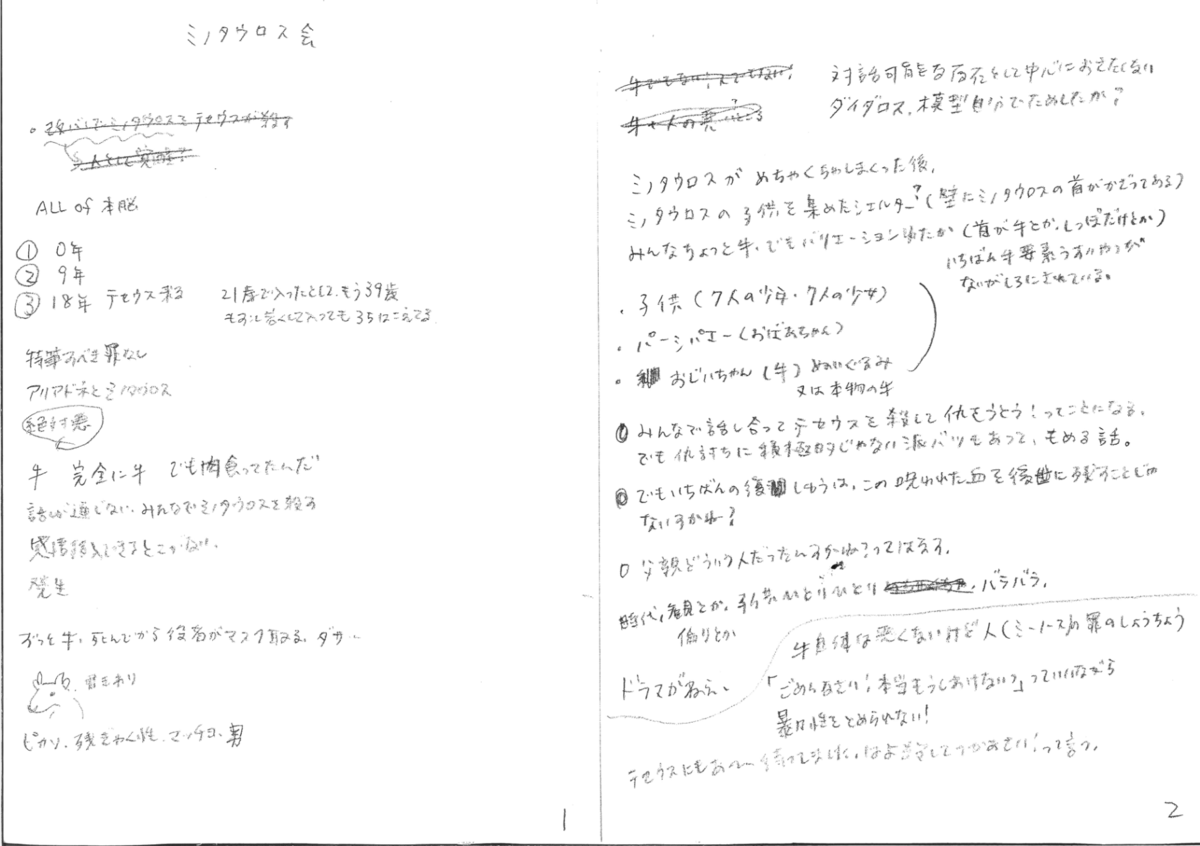 ミノタウロス会
ミノタウロスをテセウスが殺す
ALL of 本能
① 0年
② 9年
③ 18年 テセウス来る 21歳で入ったとして、もう39歳
もう少し若くして入っても35はこえてる
特筆すべき罪なし
アリアドネとミノタウロス
絶対悪
牛 完全に牛 でも肉食ってたんだ
話しが通じない、みんなでミノタウロスを殺す
感情移入できるとこがない、
発生
ずっと牛、死んでから役者がマスク取る、ダサ、
書きあり
ピカソ、残ぎゃく性、マッチョ、男
1
牛でもない、人でもない、
牛+人の悪いところ
対話可能な存在として中心におきたくない
ダイダロス、模型自分でためしたか?
ミノタウロスがめちゃくちゃしまくった後、
ミノタウロスの子供を集めたシェルター?(壁にミノタウロスの首がかざってある)
みんなちょっと牛、でもバリエーションゆたか(首が牛とか、しっぽだけとか)
いちばん牛要素うすいやつが
ないがしろにされている。
・子供(7人の少年・7人の少女)
・パーシパエー(おばあちゃん)
・おじいちゃん(牛)ぬいぐるみ
又は本物の牛
みんなで話し合ってテセウスを殺して仇をうとう!ってことになる、
でも仇討ちに積極的じゃない派バツもあって、もめる話。
でもいちばんの復しゅうは、この呪われた血を後世に残すことじゃ
ないすかね?
○ 父親どういう人だったんすかね?ってはなす、
時代、観とか、子供ひとりひとり 、バラバラ、
偏りとか
牛自体は悪くないけど人(ミーノース)の罪のしょうちょう
ドラマがねえ、
「ごめんなさい!本当もうしわけない?」っていいながら
暴力性をとめられない!
テセウスにもあって待ってました、はよ殺してつかあさい!って言う、
2